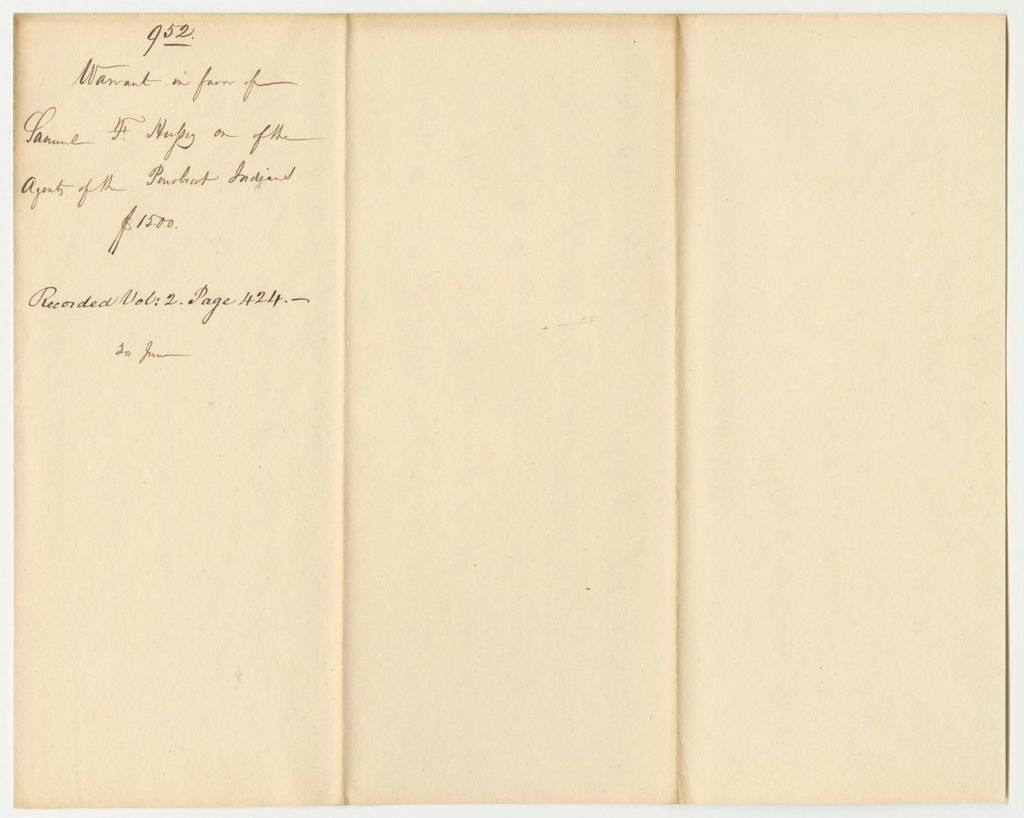 952.
Warrant in favor of
Samuel F. Hussey on of the
Agents of the Penobscot Indians
$1500.
Recorded Vol: 2. Page 424.—
20 June